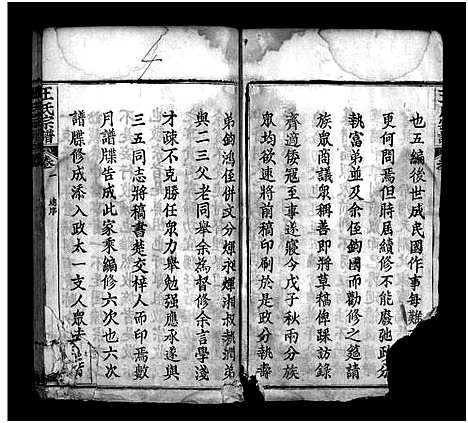 也五編後世成民國作事每難
更何問焉但時屆續修不能廢弛政分
執富弟並及余侄鈞國而勸修之筵請
族眾商議眾稱善即將草稿俾踩訪錄
齊適倭冠至事遂寢今戊子秋兩分族
眾均欲速將前稿印刷於是政分執壽
弟鈞鴻侄併文分煇永煇湘叔執潤弟
與二三父老同舉余為督修余言學淺
才疎不克勝任眾力舉勉强應承遂與
三五同志將稿書楚交梓人而印焉數
月譜牒告成此家乘編修六次也六次
譜牒修成添入政太一支人眾
王氏宗譜
卷一